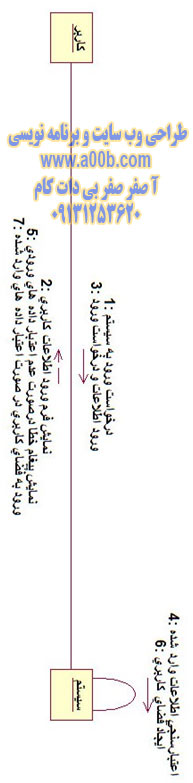 کاربر
طراحی وب سایت و برنامه نویسی
www.a00b.com
آ صفر صفر بی دات کام
۰۹۱۳۱۲۵۳۶۲۰
1: درخواست ورود به سیستم
3: ورود اطلاعات و درخواست ورود
2: نمایش فرم ورود اطلاعات کاربري
5: نمایش پیغام خطا درصورت عدم اعتبار داده هاي ورودي
7: ورود به فضاي کاربري در صورت اعتبار داده هاي وارد شده
4: اعتبارسنجي اطلاعات وارد شده
6: ایجاد فضاي کاربري
سیستم